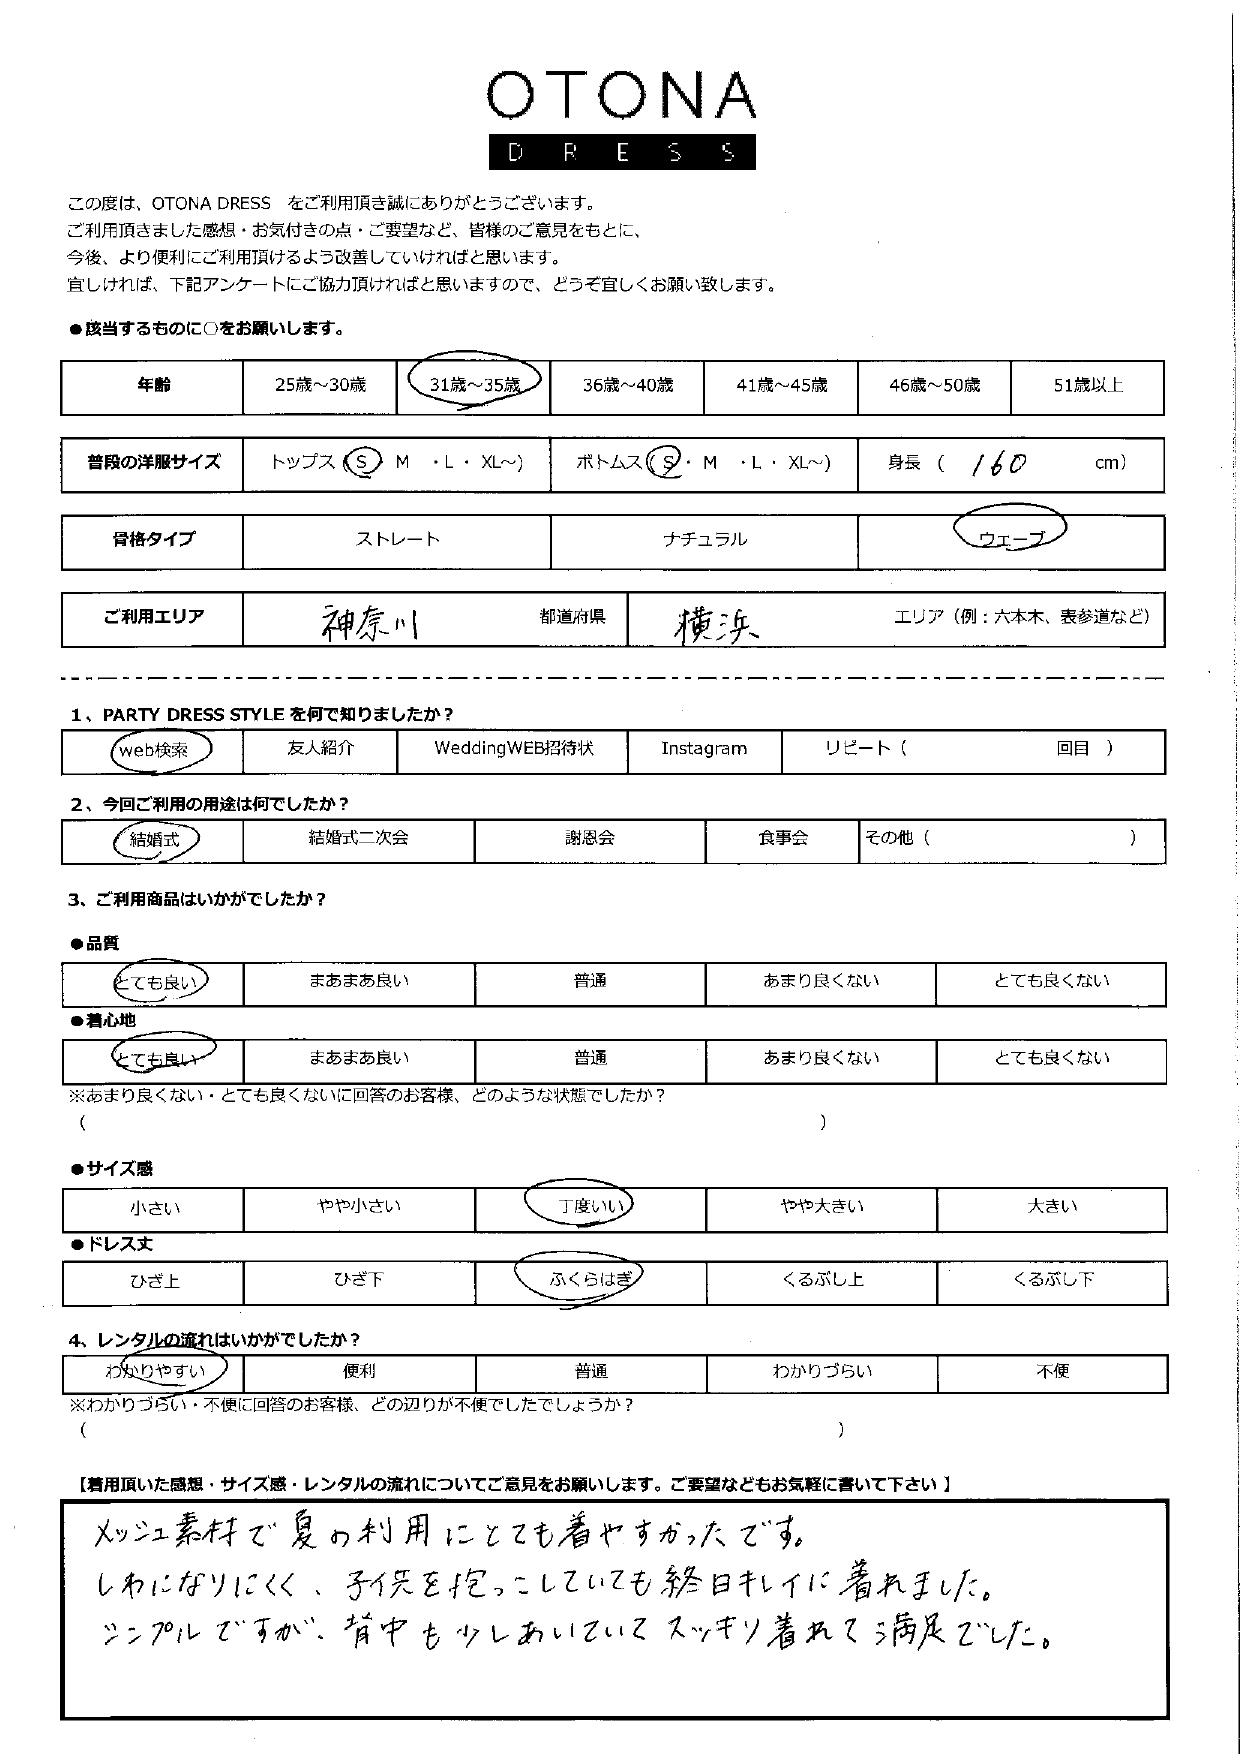 OTONA
DRESS
この度は、OTONA DRESS　をご利用頂き誠にありがとうございます。
ご利用頂きました感想・お気付きの点・ご要望など、皆様のご意見をもとに、
今後、より便利にご利用頂けるよう改善していければと思います。
宜しければ、下記アンケートにご協力頂ければと思いますので、どうぞ宜しくお願い致します。
●該当するものに○をお願いします。
年齢 25歳～30歳 31歳～35歳 36歳～40歳 41歳～45歳 46歳～50歳 51歳以上
普段の洋服サイズ トップス（S・M ・L・ XL～) ボトムス（S・M ・L・ XL～) 身長（ 160 cm）
骨格タイプ ストレート ナチュラル ウェーブ
ご利用エリア 神奈川 都道府県 横浜 エリア（例：六本木、表参道など）
1、PARTY DRESS STYLE を何で知りましたか？
web検索 友人紹介 WeddingWEB招待状 Instagram リピート（ 回目 ）
2、今回ご利用の用途は何でしたか？
結婚式 結婚式二次会 謝恩会 食事会 その他（ ）
3、ご利用商品はいかがでしたか？
●品質
とても良い まあまあ良い 普通 あまり良くない とても良くない
●着心地
とても良い まあまあ良い 普通 あまり良くない とても良くない
※あまり良くない・とても良くないに回答のお客様、どのような状態でしたか？
（ ）
●サイズ感
小さい やや小さい 丁度いい やや大きい 大きい
●ドレス丈
ひざ上 ひざ下 ふくらはぎ くるぶし上 くるぶし下
4、レンタルの流れはいかがでしたか？
わかりやすい 便利 普通 わかりづらい 不便
※わかりづらい・不便に回答のお客様、どの辺りが不便でしたでしょうか？
（ ）
【着用頂いた感想・サイズ感・レンタルの流れについてご意見をお願いします。ご要望などもお気軽に書いて下さい】
メッシュ素材で夏の利用にとても着やすかったです。
しわになりにくく、子供を抱っこしていても終日キレイに着れました。
シンプルですが、背中も少しあいていてスッキリ着れて満足でした。